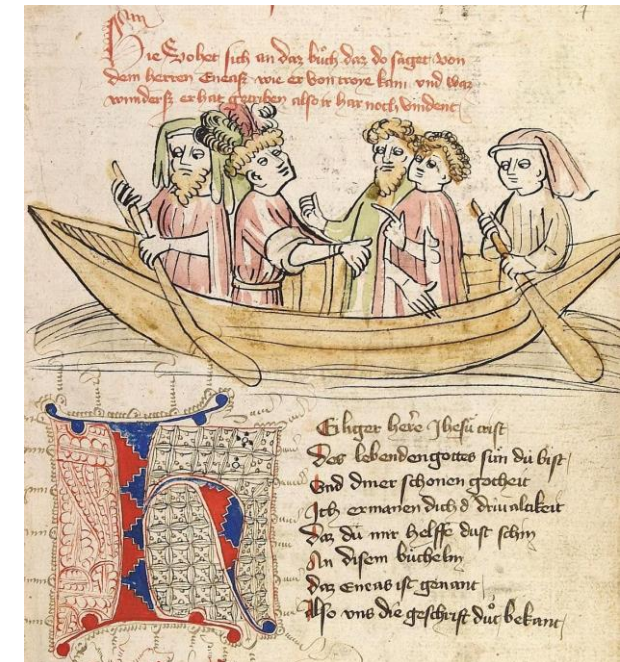 Hie vohet sich an daz buͦch daz do saget von
dem herren Eneas wie er von troye kam vnd waz
wunders er hat getriben also ir har noch vindent
Eiliger here Jhesu crist
Des lebendengottes sun du bist
Vnd diner schonen gotheit
Ich ermanen dich d drivaltikeit
Daz du mir helffe dust schin
An disem buͤchelin
Daz eneas ist genant
Also vns die geschrift duͦt bekant